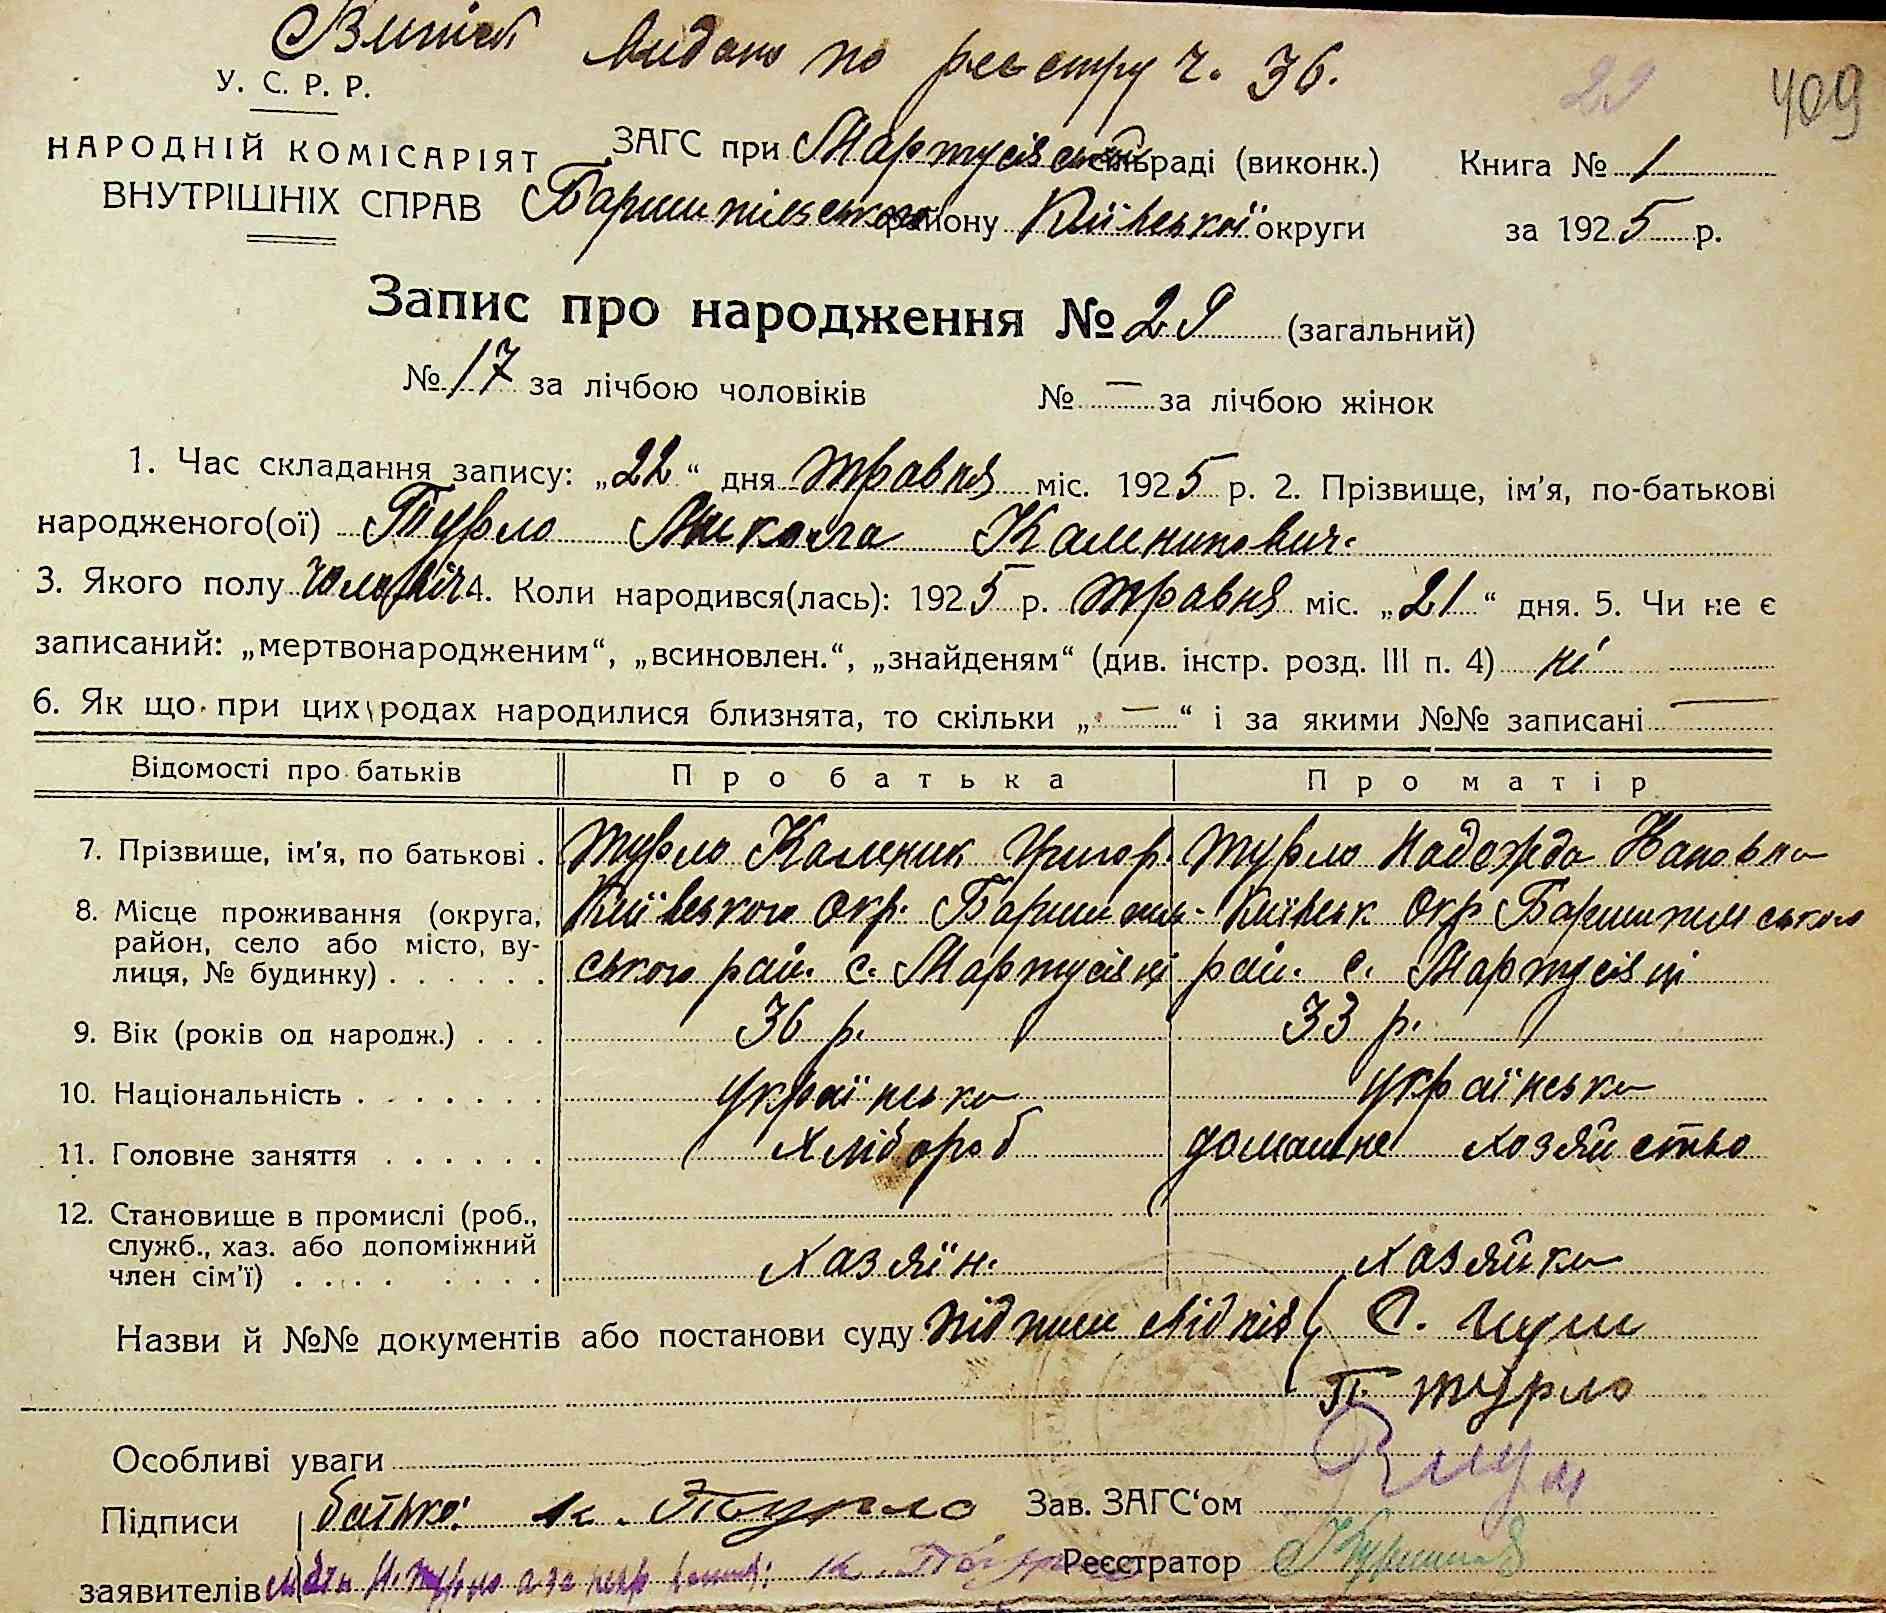 Витяг видано по реєстру ч. 36.
29 409
У. С. Р. Р.
НАРОДНІЙ КОМІСАРІЯТ ЗАГС при Мартусівській сільраді (виконк.) Книга № 1
ВНУТРІШНІХ СПРАВ Баришпільського району Київської округи за 1925 р.
Запис про народження № 29 (загальний)
№ 17 за лічбою чоловіків № — за лічбою жінок
1. Час складання запису: „22“ дня травня міс. 1925 р. 2. Прізвище, ім'я, по-батькові
народженого(ої) Турло Микола Каленикович.
3. Якого полу чоловіч 4. Коли народився(лась): 1925 р. травня міс. „21“ дня. 5. Чи не є
записаний: „мертвонародженим“, „всиновлен.“, „знайденям“ (див. інстр. розд. III п. 4) ні
6. Як що при цих родах народилися близнята, то скільки „—“ і за якими №№ записані —
Відомості про батьків Про батька Про матір
7. Прізвище, ім'я, по батькові . Турло Каленик Григор. Турло Надежда Івановна
8. Місце проживання (округа, Київського Окр. Баришпіль- Київськ Окр Баришпільського
район, село або місто, ву-
лиця, № будинку) . . . . . . ського рай. с. Мартусівці рай. с. Мартусівці
9. Вік (років од народж.) . . . 36 р. 33 р.
10. Національність . . . . . . . українська українська
11. Головне заняття . . . . . . Хлібороб домашнє хозяйство
12. Становище в промислі (роб.,
служб., хаз. або допоміжний
член сім'ї) . . . . . . . . Хазяїн. Хазяйка
Назви й №№ документів або постанови суду підписи свідків
П. Турло
Особливі уваги
Підписи батько: К. Турло Зав. ЗАГС'ом
заявителів Мати Н. Турло а за неї К. Турло Реєстратор